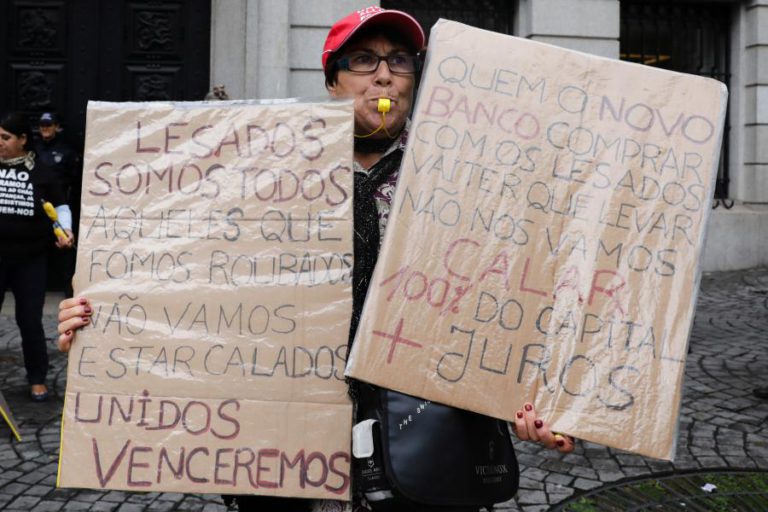 LESADOS
SOMOS TODOS
AQUELES QUE
FOMOS ROUBADOS
NÃO VAMOS
ESTAR CALADOS
UNIDOS
VENCEREMOS
QUEM O NOVO
BANCO COMPRAR
COM OS LESADOS
VAI TER QUE LEVAR
NÃO NOS VAMOS
CALAR
100% DO CAPITAL
+ JUROS
NÃO